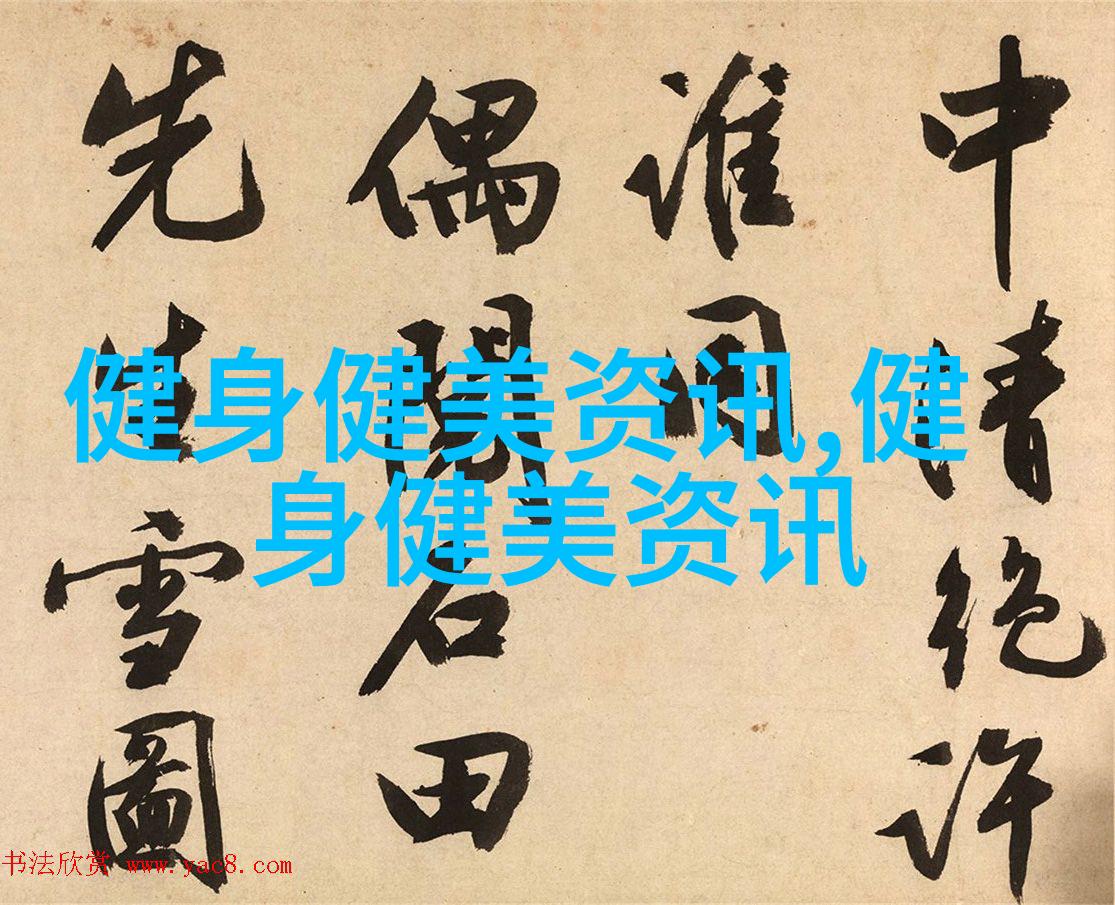 中清絶許
誰同
偶閱石田
先生雪圖
健身健美资讯,健
身健美资讯
书法欣赏 www.yac8.com